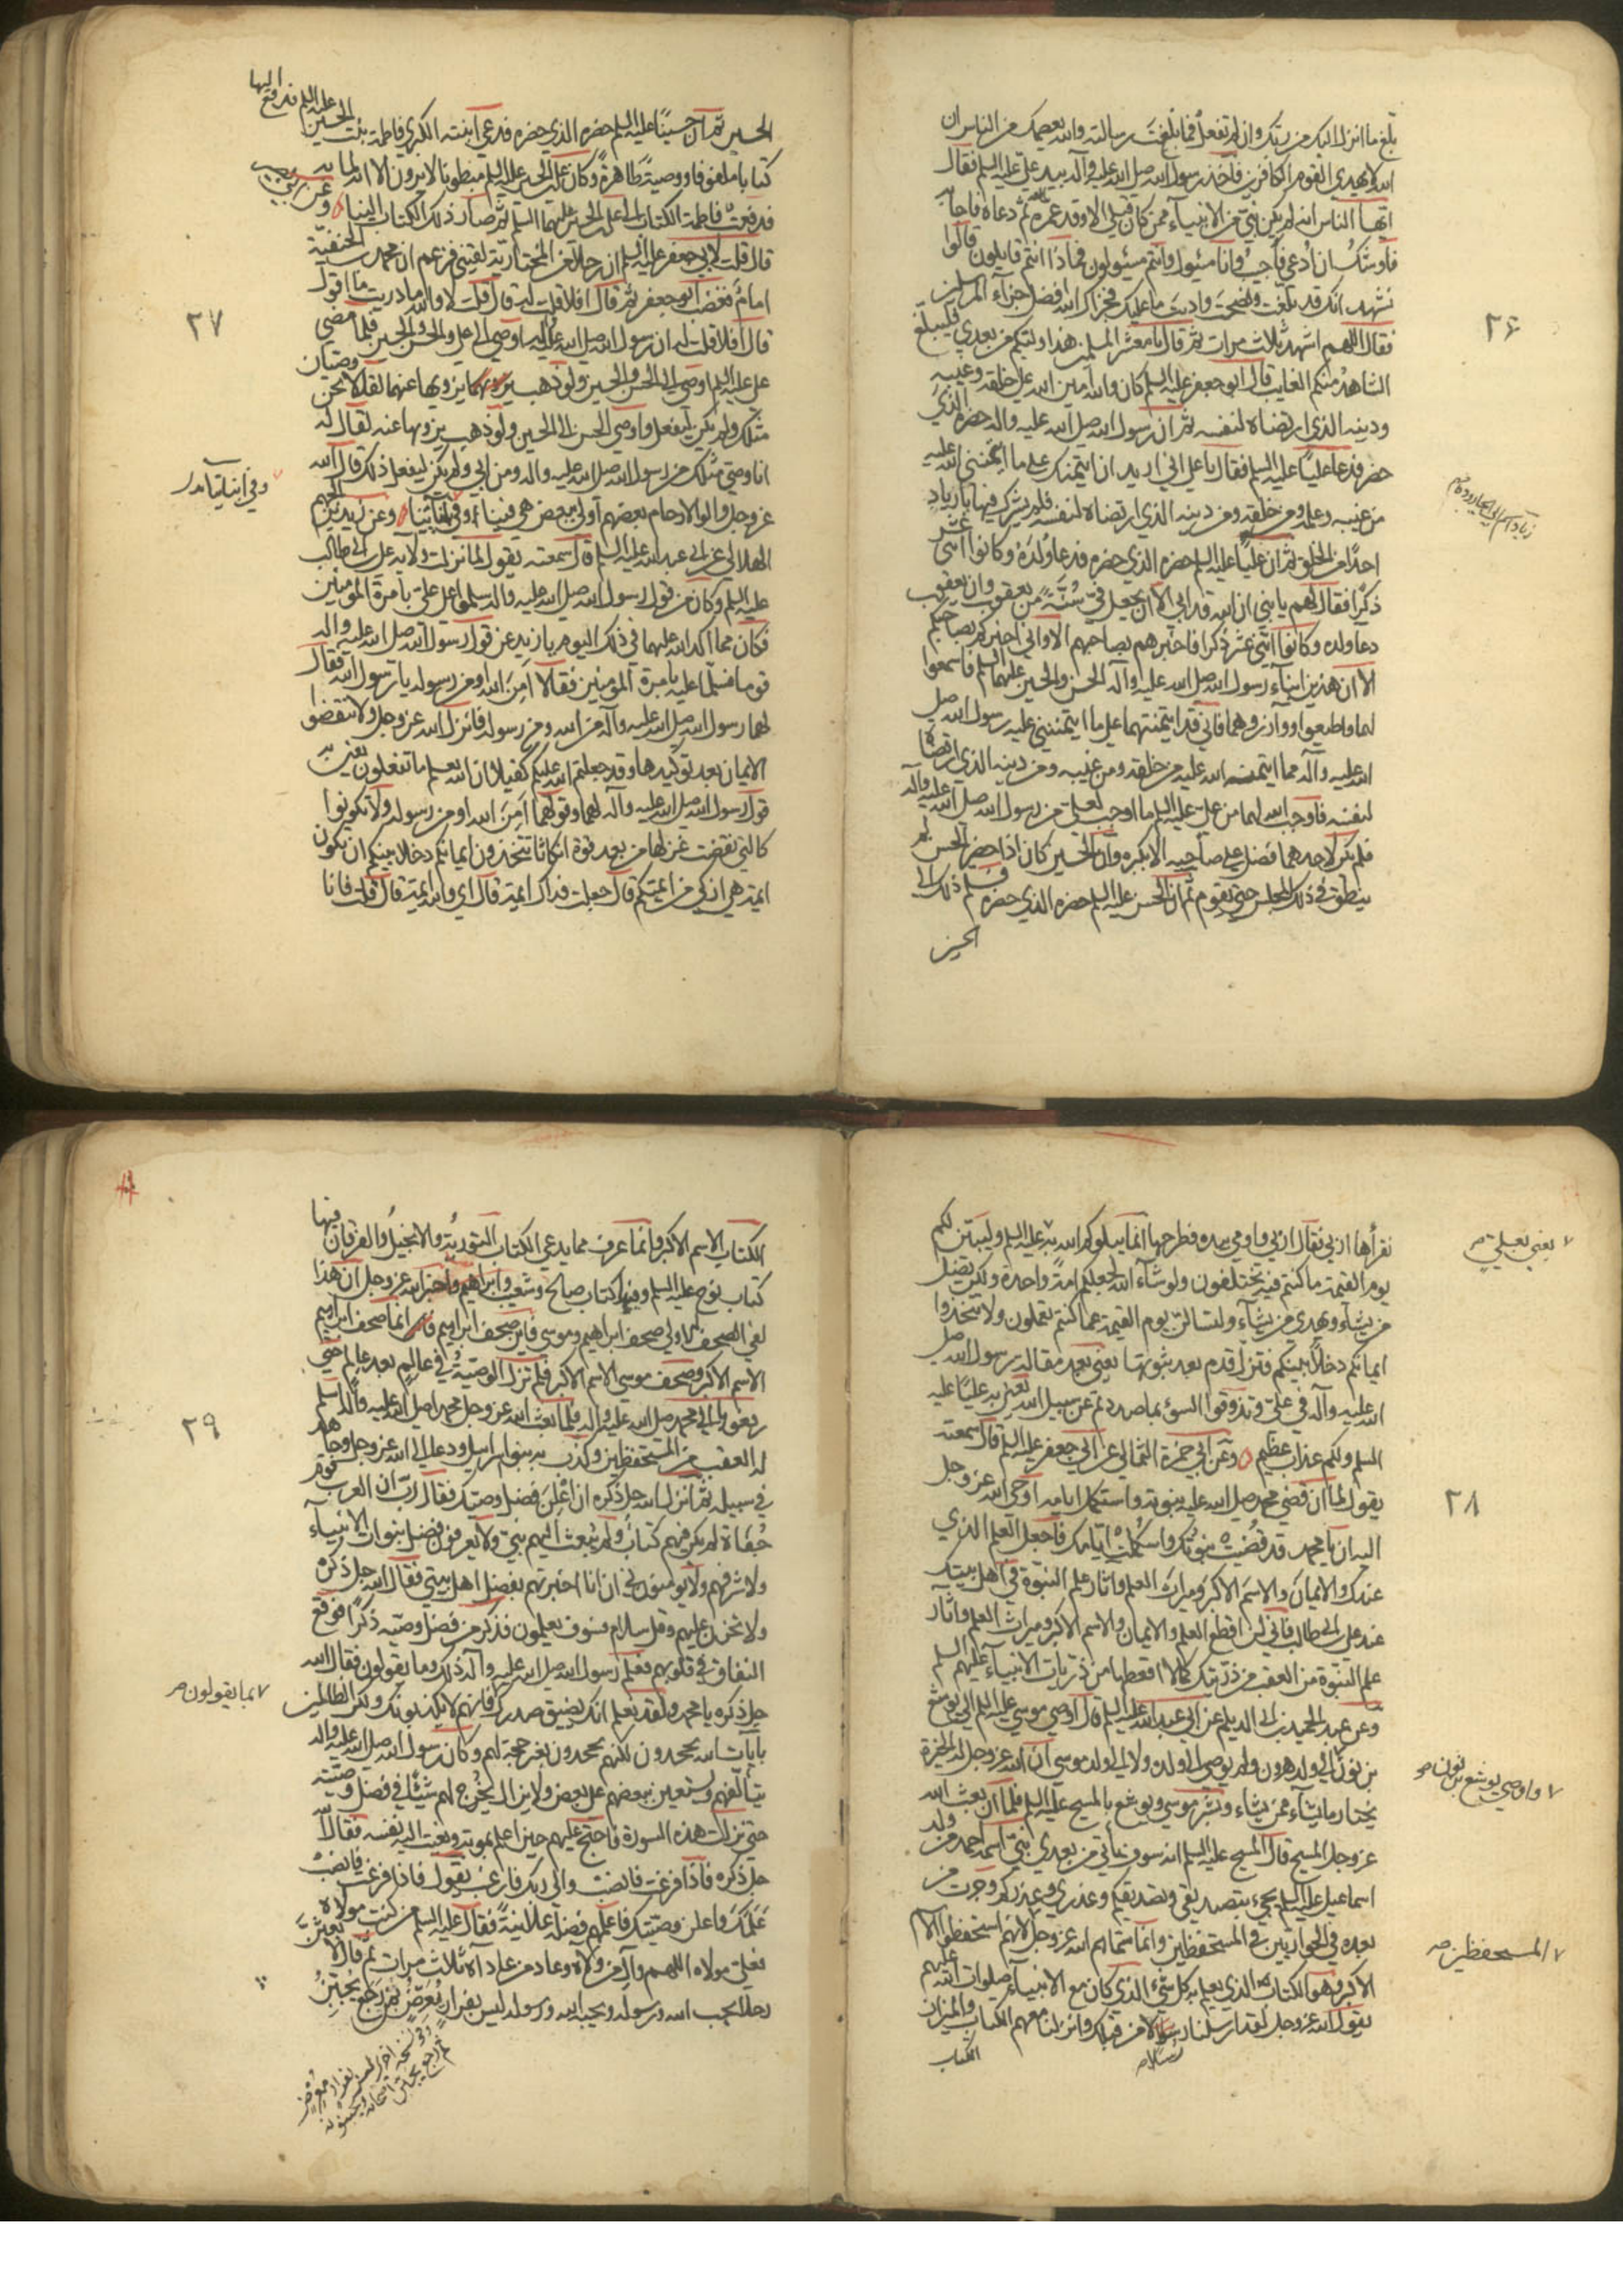 بلغ ما انزل اليك من ربك وان لم تفعل فما بلغت رسالته والله يعصمك من الناس ان
الله لا يهدي القوم الكافرين فاخذ رسول الله صلى الله عليه وآله بيد علي عليه السلم فقال
ايها الناس انه لم يكن نبي من الانبياء ممن كان قبلي الا وقد عمره الله ثم دعاه فاجابه
فاوشك ان ادعى فاجيب وانا مسئول وانتم مسئولون فماذا انتم قايلون قالوا
نشهد انك قد بلغت ونصحت واديت ما عليك فجزاك الله افضل جزاء المرسلين
فقال اللهم اشهد ثلاث مرات ثم قال يا معشر المسلمين هذا وليكم من بعدي فليبلغ
الشاهد منكم الغايب قال ابو جعفر عليه السلم كان والله امين الله على خلقه وغيبه
ودينه الذي ارتضاه لنفسه ثم ان رسول الله صلى الله عليه واله حضره الذي
حضر فدعا عليا عليه السلم فقال يا علي اني اريد ان ايتمنك على ما ايتمنني الله عليه
من غيبه وعلمه ومن خلقه ومن دينه الذي ارتضاه لنفسه فلم يشرك فيها يا زياد
احدا من الخلق ثم ان عليا عليه السلم حضره الذي حضره فدعا ولده وكانوا اثنى عشر
ذكرا فقال لهم يا بني ان الله قد ابى الا ان يجعل في سنة من يعقوب وان يعقوب
دعا ولده وكانوا اثنى عشر ذكرا فاخبرهم بصاحبهم الا واني اخبركم بصاحبكم
الا ان هذين ابناء رسول الله صلى الله عليه وآله الحسن والحسين عليهما السلم فاسمعوا
لهما واطيعوا ووازروهما فاني قد ايتمنتهما على ما ايتمنني عليه رسول الله صلى
الله عليه وآله مما ايتمنه الله عليه من خلقه ومن غيبه ومن دينه الذي ارتضاه
لنفسه فاوجب الله لهما من علي عليه السلم ما اوجب لعلي من رسول الله صلى الله عليه وآله
فلم يكن لاحد هما فضل على صاحبه الا بكبره وان الحسين كان اذا حضر الحسن لم
ينطق في ذلك المجلس حتى يقوم ثم ان الحسن عليه السلم حضره الذي حضره فسلم ذلك الى
الحسين
٢۶
زياد اسم ابي الجارود
الحسين ثم ان حسينا عليه السلم حضره الذي حضره فدعى ابنته الكبرى فاطمة بنت الحسين عليه السلم فدفع اليها
كتابا ملفوفا ووصية ظاهرة وكان علي بن الحسين عليه السلم مبطونا لا يرون الا انه لما به
فدفعت فاطمة الكتاب الى علي بن الحسين عليهما السلم ثم صار ذلك الكتاب الينا وعن
قال قلت لابي جعفر عليه السلم ان رجلا من المختارية لقيني فزعم ان محمد بن الحنفية
امام فغضب ابو جعفر ثم قال افلا قلت له قال قلت لا والله ما دريت ما اقول
قال افلا قلت له ان رسول الله صلى الله عليه واله اوصى الى علي والحسن والحسين فلما مضى
علي عليه السلم اوصى الى الحسن والحسين ولو ذهب يزويها عنهما لقالا نحن وصيان
مثلك ولم يكن ليفعل واوصى الحسن الى الحسين ولو ذهب يزويها عنه لقال له
انا وصي مثلك من رسول الله صلى الله عليه واله ومن ابي ولم يكن ليفعل ذلك قال الله
عز وجل واولوا الارحام بعضهم اولى ببعض هي فينا وعن زيد بن الجهم
الهلالي عن ابي عبدالله عليه السلم قال سمعته يقول لما نزلت ولاية علي بن ابي طالب
عليه السلم وكان من قول رسول الله صلى الله عليه واله سلموا على علي بامرة المؤمنين
فكان مما اكد الله عليهما في ذلك اليوم يا زيد عن قول رسول الله صلى الله عليه واله
قوما فسلما عليه بامرة المؤمنين فقالا امن الله او من رسوله يا رسول الله فقال
لهما رسول الله صلى الله عليه وآله من الله ومن رسوله فانزل الله عز وجل ولا تنقضوا
الايمان بعد توكيدها وقد جعلتم الله عليكم كفيلا ان الله يعلم ما تفعلون يعني به
قول رسول الله صلى الله عليه وآله لهما وقولهما امن الله او من رسوله ولا تكونوا
كالتي نقضت غزلها من بعد قوة انكاثا تتخذون ايمانكم دخلا بينكم ان تكون
ايمة هي ازكى من ايمتكم قال جعلت فداك ايمة قال اي والله ايمة قال قلت فانا
٢٧
نقرأها اربى فقال ما اربى واومى بيده فطرحها انما يبلوكم الله به عليه السلم وليبينن لكم
يوم القيمة ما كنتم فيه تختلفون ولو شاء الله لجعلكم امة واحدة ولكن يضل
من يشاء ويهدي من يشاء ولتسئلن يوم القيمة عما كنتم تعملون ولا تتخذوا
ايمانكم دخلا بينكم فتزل قدم بعد ثبوتها يعني بعد مقالة رسول الله صلى
الله عليه وآله في علي وتذوقوا السوء بما صددتم عن سبيل الله يعني به عليا عليه
السلم ولكم عذاب عظيم وعن ابي حمزة الثمالي عن ابي جعفر عليه السلم قال سمعته
يقول لما ان قضى محمد صلى الله عليه نبوته واستكمل ايامه اوحى الله عز وجل
اليه ان يا محمد قد قضيت نبوتك واستكملت ايامك فاجعل العلم الذي
عندك والايمان والاسم الاكبر وميراث العلم واثار علم النبوة في اهل بيتك
عند علي بن ابي طالب فاني لن اقطع العلم والايمان والاسم الاكبر وميراث العلم واثار
علم النبوة من العقب من ذريتك كما لا اقطعها من ذريات الانبياء عليهم السلم
وعن عبد الحميد بن ابي الديلم عن ابي عبد الله عليه السلم قال اوصى موسى عليه السلم الى يوشع
بن نون الى ولد هرون ولم يوص الى ولده ولا الى ولد موسى ان الله عز وجل له الخيرة
يختار ما يشاء ممن يشاء وبشر موسى ويوشع بالمسيح عليه السلم فلما ان بعث الله
عز وجل المسيح قال المسيح عليه السلم انه سوف ياتي من بعدي نبي اسمه احمد من ولد
اسماعيل عليه السلم يجيء بتصديقي وتصديقكم وعذري وعذركم وجرت من
بعده في الحواريين في المستحفظين وانما سماهم الله عز وجل لانهم استحفظوا الاسم
الاكبر وهو الكتاب الذي يعلم به كل شيء الذي كان مع الانبياء صلوات الله عليهم
يقول الله عز وجل لقد ارسلنا رسلا من قبلك وانزلنا معهم الكتاب والميزان
الكتاب
يعني بعلي
٢٨
واوصى يوشع بن نون
المستحفظين
الكتاب الاسم الاكبر وانما عرف مما يدعى الكتاب التورية والانجيل والفرقان فيها
كتاب نوح عليه السلم وفيها كتاب صالح وشعيب وابراهيم واخبر الله عز وجل ان هذا
لفي الصحف الاولى صحف ابراهيم وموسى فاين صحف ابراهيم انما صحف ابراهيم
الاسم الاكبر وصحف موسى الاسم الاكبر فلم تزل الوصية في عالم بعد عالم حتى
دفعوها الى محمد صلى الله عليه واله فلما بعث الله عز وجل محمدا صلى الله عليه واله اسلم
له العقب من المستحفظين وكذب به بنو اسرائيل ودعا الى الله عز وجل وجاهد
في سبيله ثم انزل الله جل ذكره ان اعلن فضل وصيك فقال رب ان العرب قوم
جفاة لم يكن فيهم كتاب ولم يبعث اليهم نبي ولا يعرفون فضل نبوات الانبياء
ولا شرفهم ولا يؤمنون بي ان انا اخبرتهم بفضل اهل بيتي فقال الله جل ذكره
ولا تحزن عليهم وقل سلام فسوف يعلمون فذكر من فضل وصيه ذكرا فوقع
النفاق في قلوبهم فعلم رسول الله صلى الله عليه وآله ذلك وما يقولون فقال الله
جل ذكره يا محمد ولقد نعلم انك يضيق صدرك فانهم لا يكذبونك ولكن الظالمين
بآيات الله يجحدون لكنهم يجحدون بغير حجة لهم وكان رسول الله صلى الله عليه واله
يتألفهم ويستعين ببعضهم على بعض ولا يزال يخرج لهم شيئا في فضل وصيته
حتى نزلت هذه السورة فاحتج عليهم حين اعلم بموته ونعيت اليه نفسه فقال الله
جل ذكره فاذا فرغت فانصب والى ربك فارغب يقول فاذا فرغت فانصب
علمك واعلن وصيتك فاعلمهم فضله علانية فقال عليه السلم من كنت مولاه
فعلي مولاه اللهم وال من والاه وعاد من عاداه ثلاث مرات ثم قال لابعثن
رجلا يحب الله ورسوله ويحبه الله ورسوله ليس بفرار يعرض بمن رجع يجبن
٢٩
بما يقولون